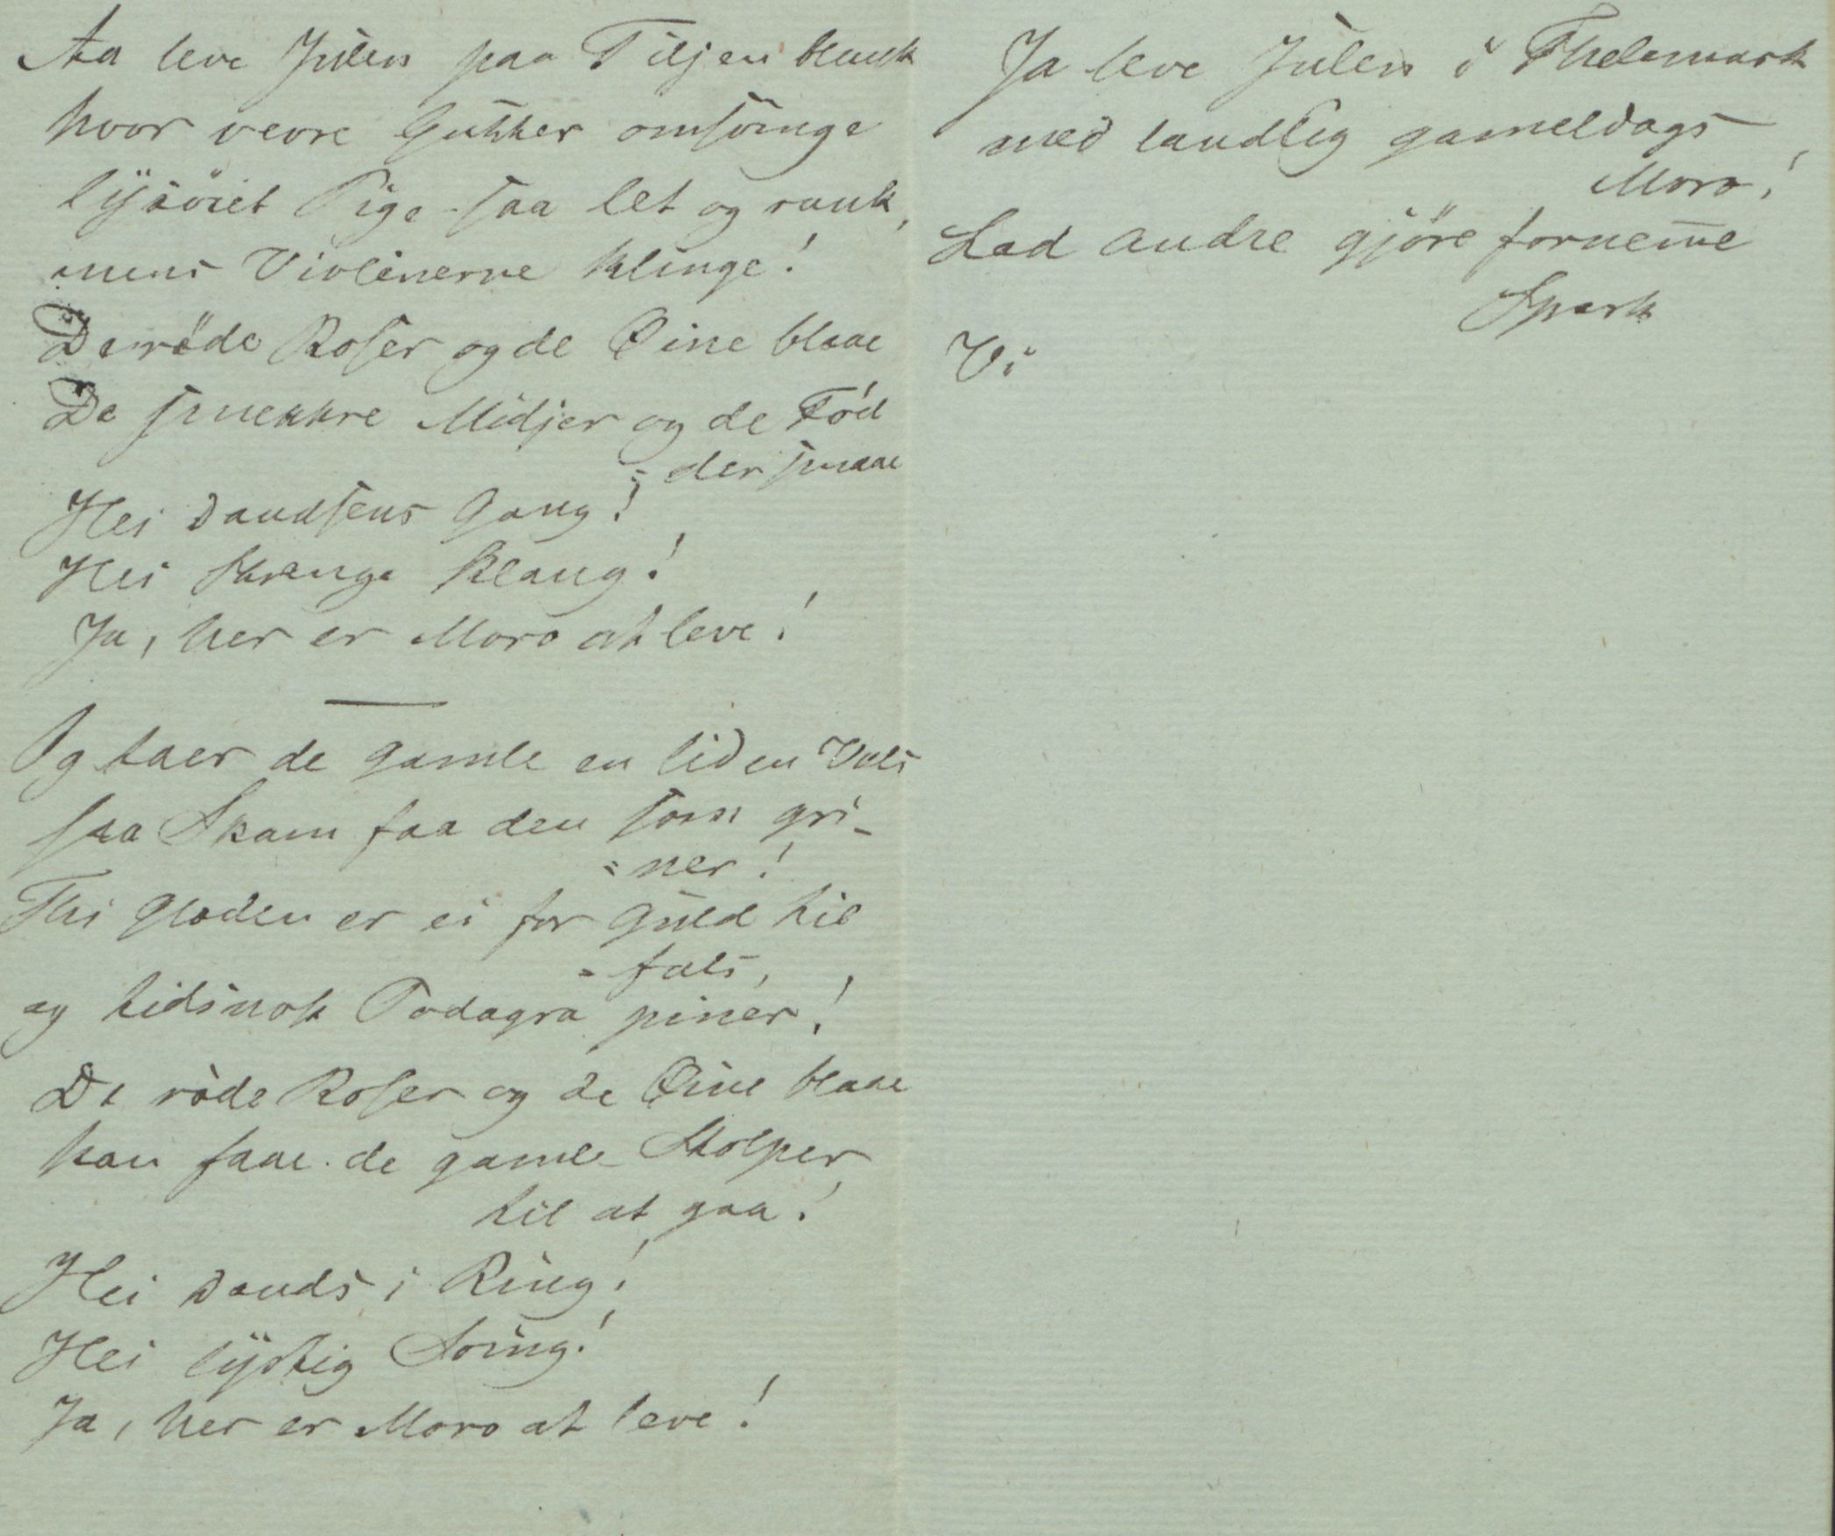 Aa leve Julen paa Tiljen blank
hvor vevre Gutter omsvinge
lysöiet Pige saa let og rank,
mens Violinerne klinge!
De röde Roser og de Øine blaae
De smekkre Midjer og de Fød
=der smaae
Hei Dandsens Gang!
Hei Strenge Klang!
Ja, her er Moro at leve!
Og taer de gamle en liden Vals
saa Skam faa den som gri-
=ner!
Thi Glæden er ei for Guld til
- fals,
og tidsnok Podagra piner!
De röde Roser og de Øine blaae
kan faae de gamle Stolper
til at gaa!
Hei Dands i Ring!
Hei lystig Sving!
Ja, her er Moro at leve!
Ja leve Julen i Thelemark
med landlig gameldags
Moro!
Lad andre gjöre forneme
Spark
Vi